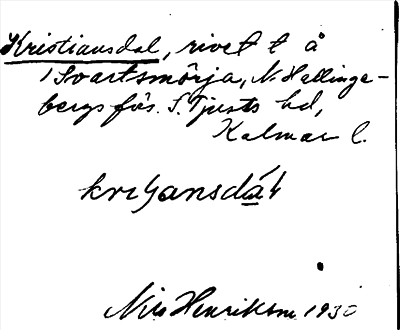 Kristiansdal, rivet t å
i Svartsmörja, N. Hallinge-
bergs förs. S. Tjusts hd,
Kalmar l.
Nils Henriksson 1930